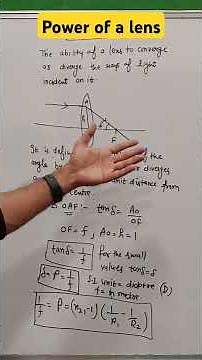 Power of a lens
The ability of a lens to converge
or diverge the rays of light
incident on it.
It is defined of the
angle by diverges
unit distance from
centre.
OAF:- tanδ = Ao/OF
OF = f, Ao = h = 1
tanδ = 1/f for the small
values tanδ=δ
δ = P = 1/f S.I unit = dioptre (D)
f = in meter.
1/f = P = (n₂₁-1) (1/R₁ - 1/R₂)